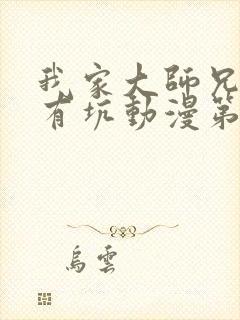 我家大師兄
有坑動漫第
烏雲